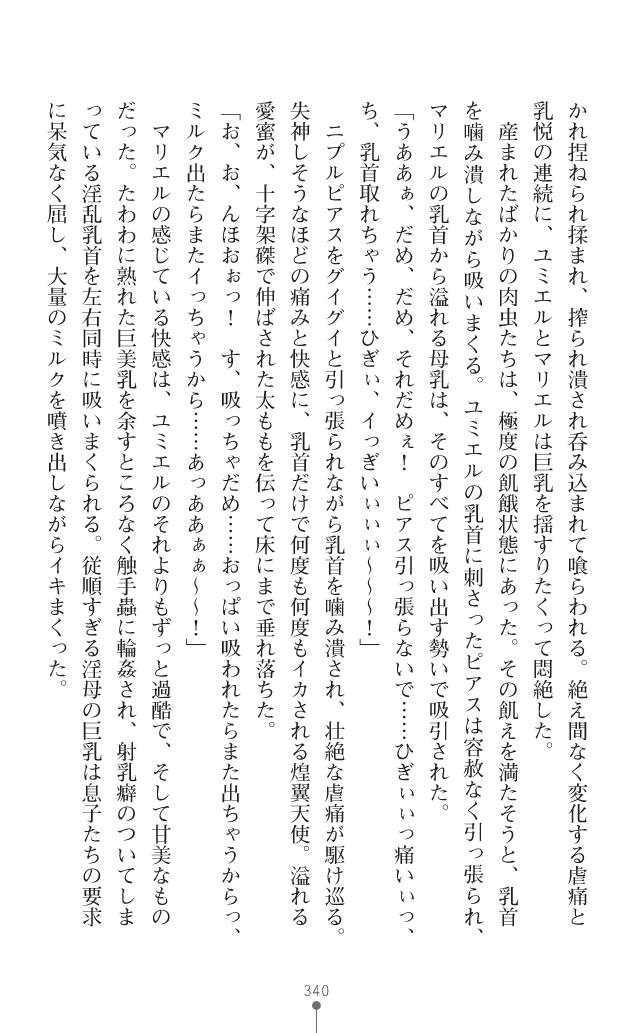 かれ捏ねられ揉まれ、搾られ潰され呑み込まれて喰らわれる。絶え間なく変化する虐痛と
乳悦の連続に、ユミエルとマリエルは巨乳を揺すりたくって悶絶した。
　産まれたばかりの肉虫たちは、極度の飢餓状態にあった。その飢えを満たそうと、乳首
を噛み潰しながら吸いまくる。ユミエルの乳首に刺さったピアスは容赦なく引っ張られ、
マリエルの乳首から溢れる母乳は、そのすべてを吸い出す勢いで吸引された。
「うああぁ、だめ、だめ、それだめぇ！　ピアス引っ張らないで……ひぎぃぃっ痛いぃっ、
ち、乳首取れちゃう……ひぎぃ、イっぎいぃぃぃ～～～！」
　ニプルピアスをグイグイと引っ張られながら乳首を噛み潰され、壮絶な虐痛が駆け巡る。
失神しそうなほどの痛みと快感に、乳首だけで何度も何度もイカされる煌翼天使。溢れる
愛蜜が、十字架磔で伸ばされた太ももを伝って床にまで垂れ落ちた。
「お、お、んほおぉっ！　す、吸っちゃだめ……おっぱい吸われたらまた出ちゃうからっ、
ミルク出たらまたイっちゃうから……あっああぁぁ～～！」
　マリエルの感じている快感は、ユミエルのそれよりもずっと過酷で、そして甘美なもの
だった。たわわに熟れた巨美乳を余すところなく触手蟲に輪姦され、射乳癖のついてしま
っている淫乱乳首を左右同時に吸いまくられる。従順すぎる淫母の巨乳は息子たちの要求
に呆気なく屈し、大量のミルクを噴き出しながらイキまくった。
340